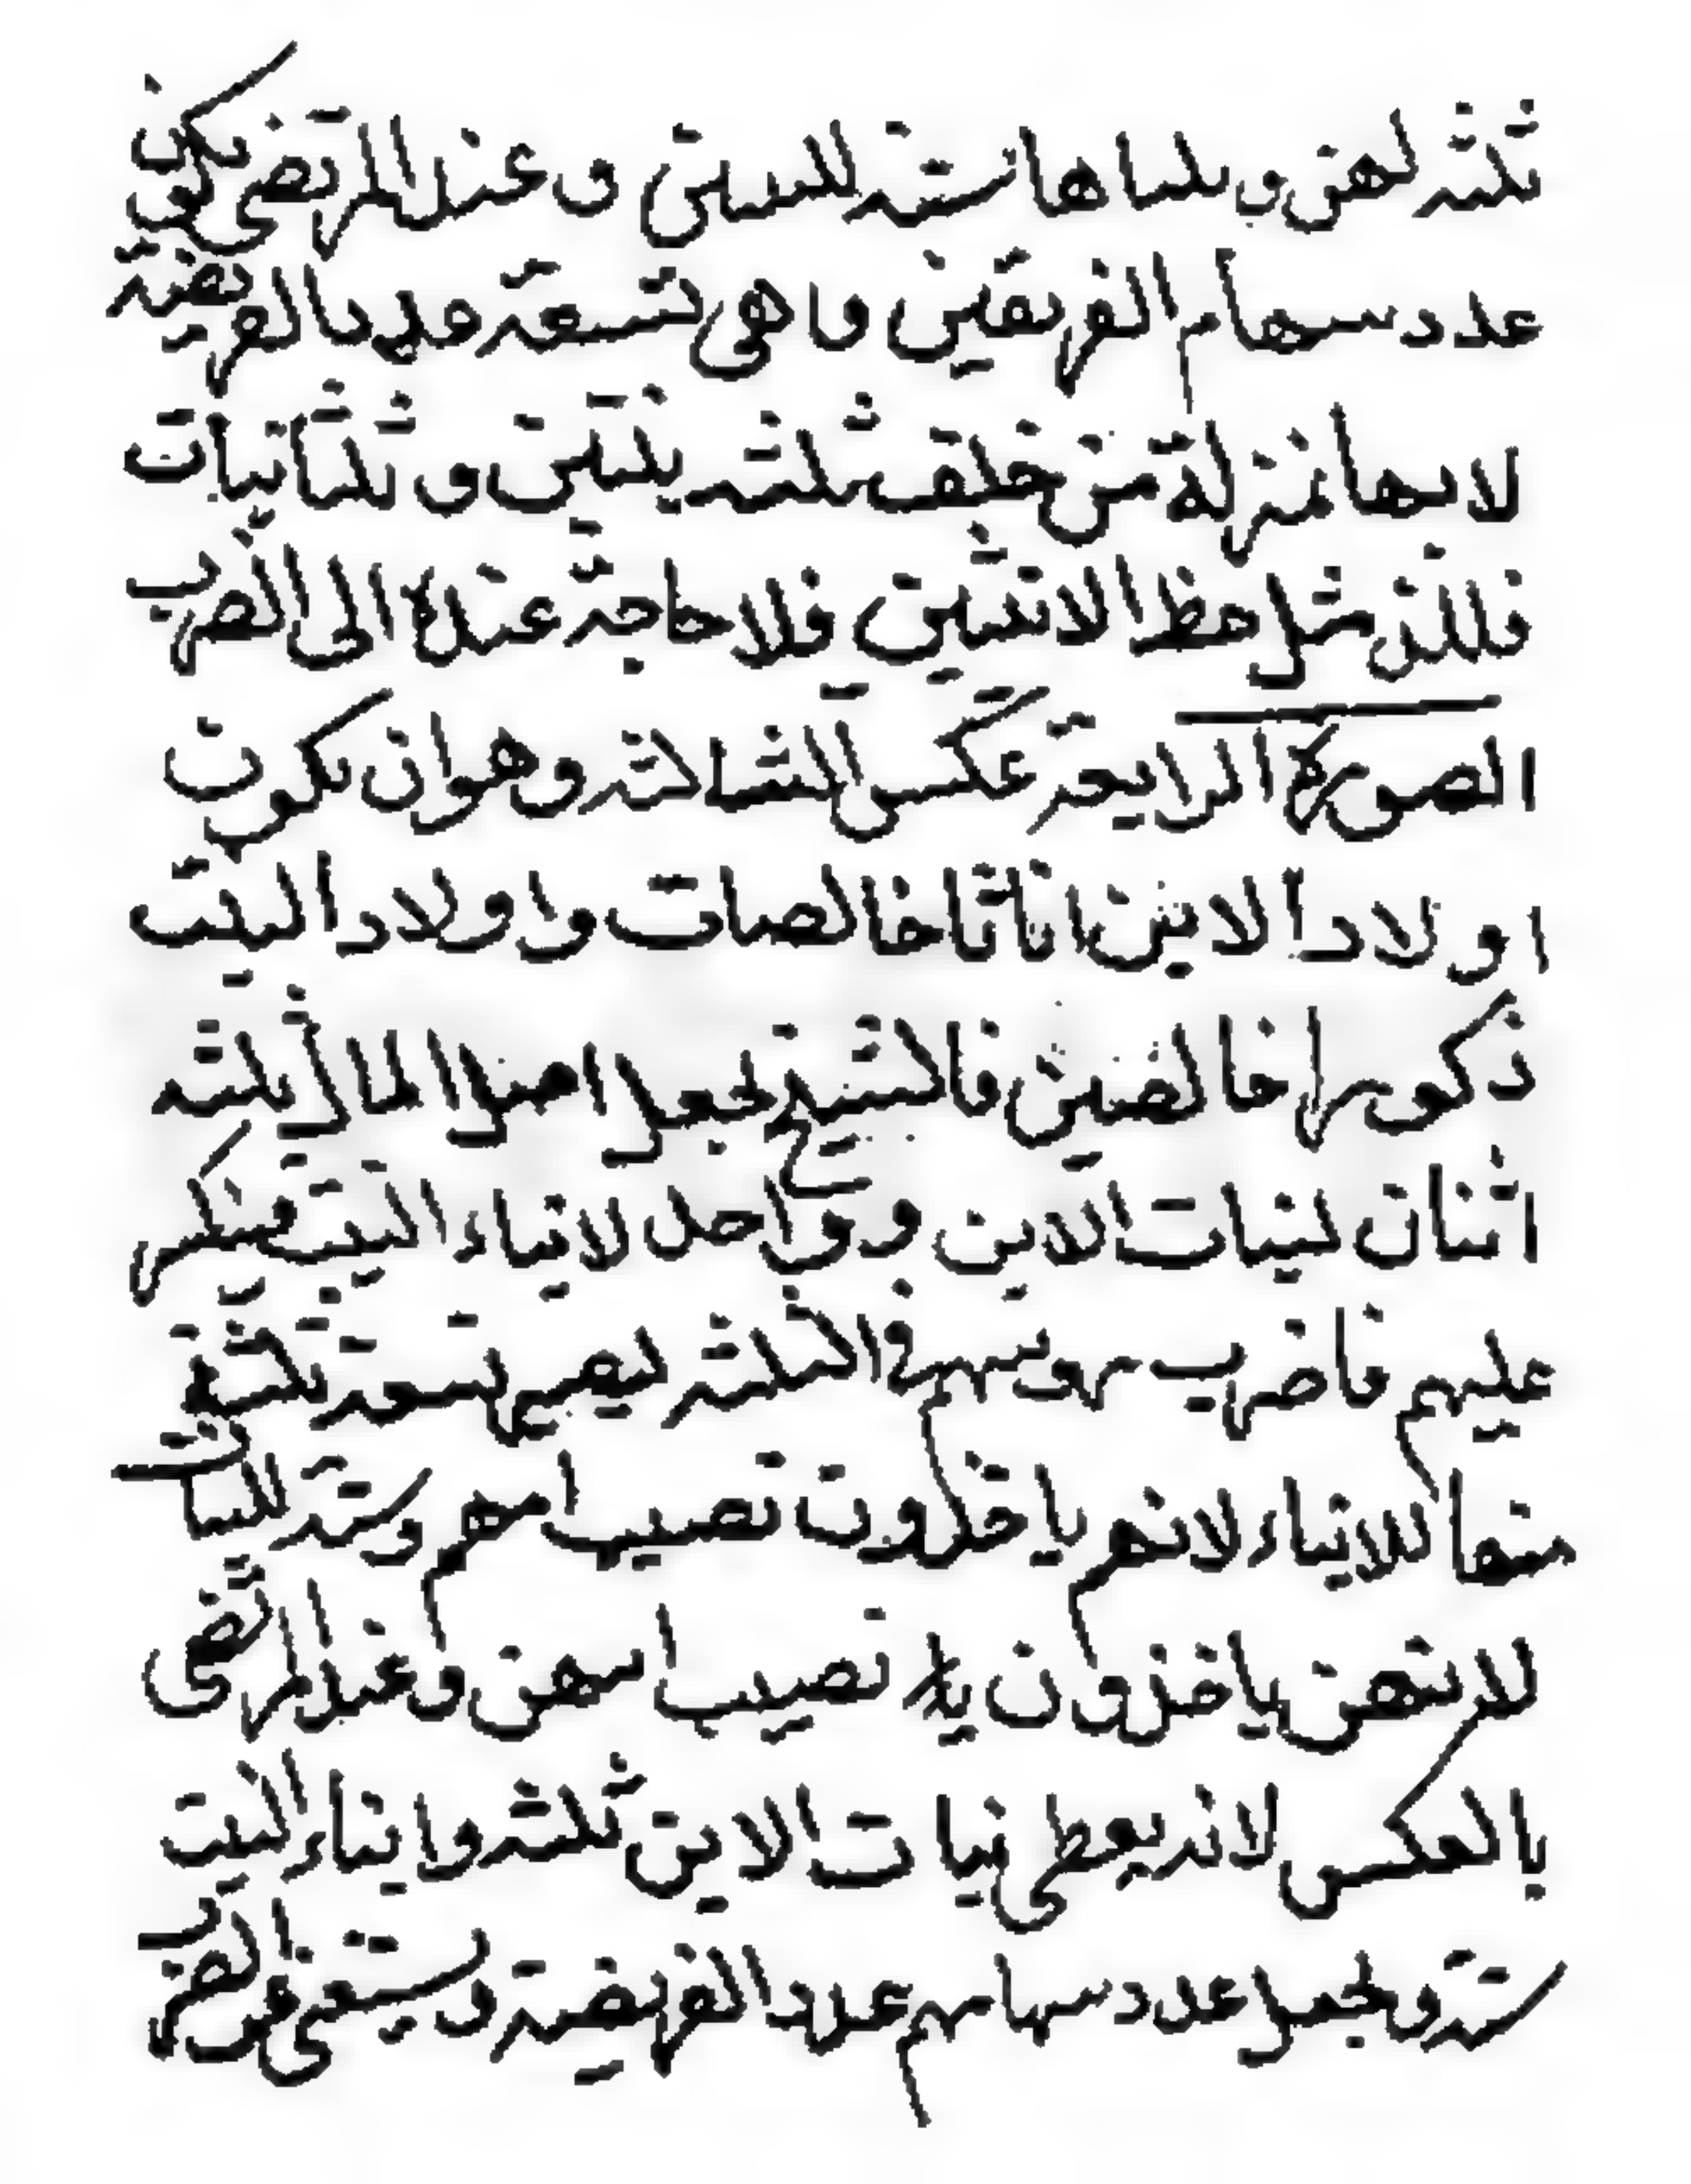 ثلثه لهن وثلثاها سته للبنتين وعند المرتضى يكون
عدد سهام الفريقين واهى تسعة عدد الفريضة
لانها بمنزلة من خلف ثلثه بنتين وثلث بنات
فللذكر مثل حظ الانثيين فلا حاجة عنده الى الضرب
الصورة الرابعة عكس الثالثة وهو ان يكون
اولاد الابن اناثا خالصات واولاد البنت
ذكورا خالصين فالشيخ يجعل اصل المال ثلثه
اثنان لبنات الابن وواحد لابناء البنت فينكسر
عليهم فاضرب سهمهم في الثلثه ليصير تسعة ثلثة
منها للابناء لانهم ياخذون نصيب امهم وسته للبنات
لانهن ياخذون نصيب ابيهن وعند المرتضى
بالعكس لانه يعطى بنات الابن ثلثه وابناء البنت
سته ويجعل عدد سهامهم عدد الفريضة ويستغنى عن الضرب